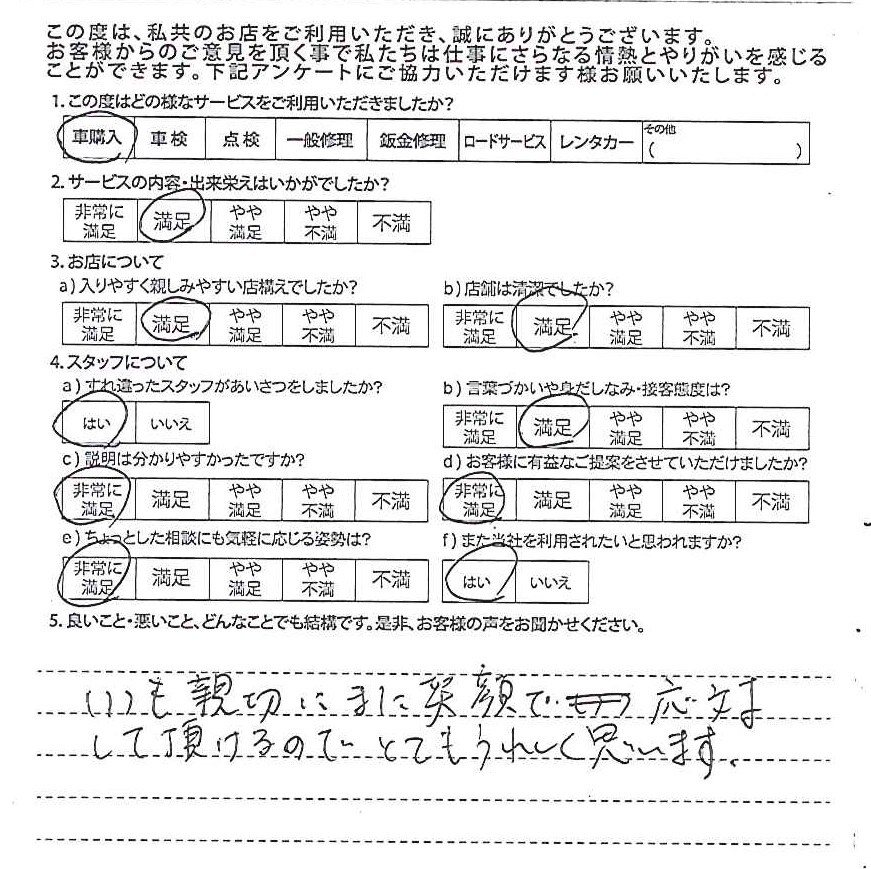 この度は、私共のお店をご利用いただき、誠にありがとうございます。
お客様からのご意見を頂く事で私たちは仕事にさらなる情熱とやりがいを感じる
ことができます。下記アンケートにご協力いただけます様お願いいたします。
1.この度はどの様なサービスをご利用いただきましたか?
車購入 車検 点検 一般修理 鈑金修理 ロードサービス レンタカー その他( )
2.サービスの内容・出来栄えはいかがでしたか?
非常に満足 満足 やや満足 やや不満 不満
3.お店について
a)入りやすく親しみやすい店構えでしたか?
非常に満足 満足 やや満足 やや不満 不満
b)店舗は清潔でしたか?
非常に満足 満足 やや満足 やや不満 不満
4.スタッフについて
a)すれ違ったスタッフがあいさつをしましたか?
はい いいえ
b)言葉づかいや身だしなみ・接客態度は?
非常に満足 満足 やや満足 やや不満 不満
c)説明は分かりやすかったですか?
非常に満足 満足 やや満足 やや不満 不満
d)お客様に有益なご提案をさせていただけましたか?
非常に満足 満足 やや満足 やや不満 不満
e)ちょっとした相談にも気軽に応じる姿勢は?
非常に満足 満足 やや満足 やや不満 不満
f)また当社を利用されたいと思われますか?
はい いいえ
5.良いこと・悪いこと、どんなことでも結構です。是非、お客様の声をお聞かせください。
いつも親切にまた笑顔で 応対
して頂けるので とてもうれしく思います.